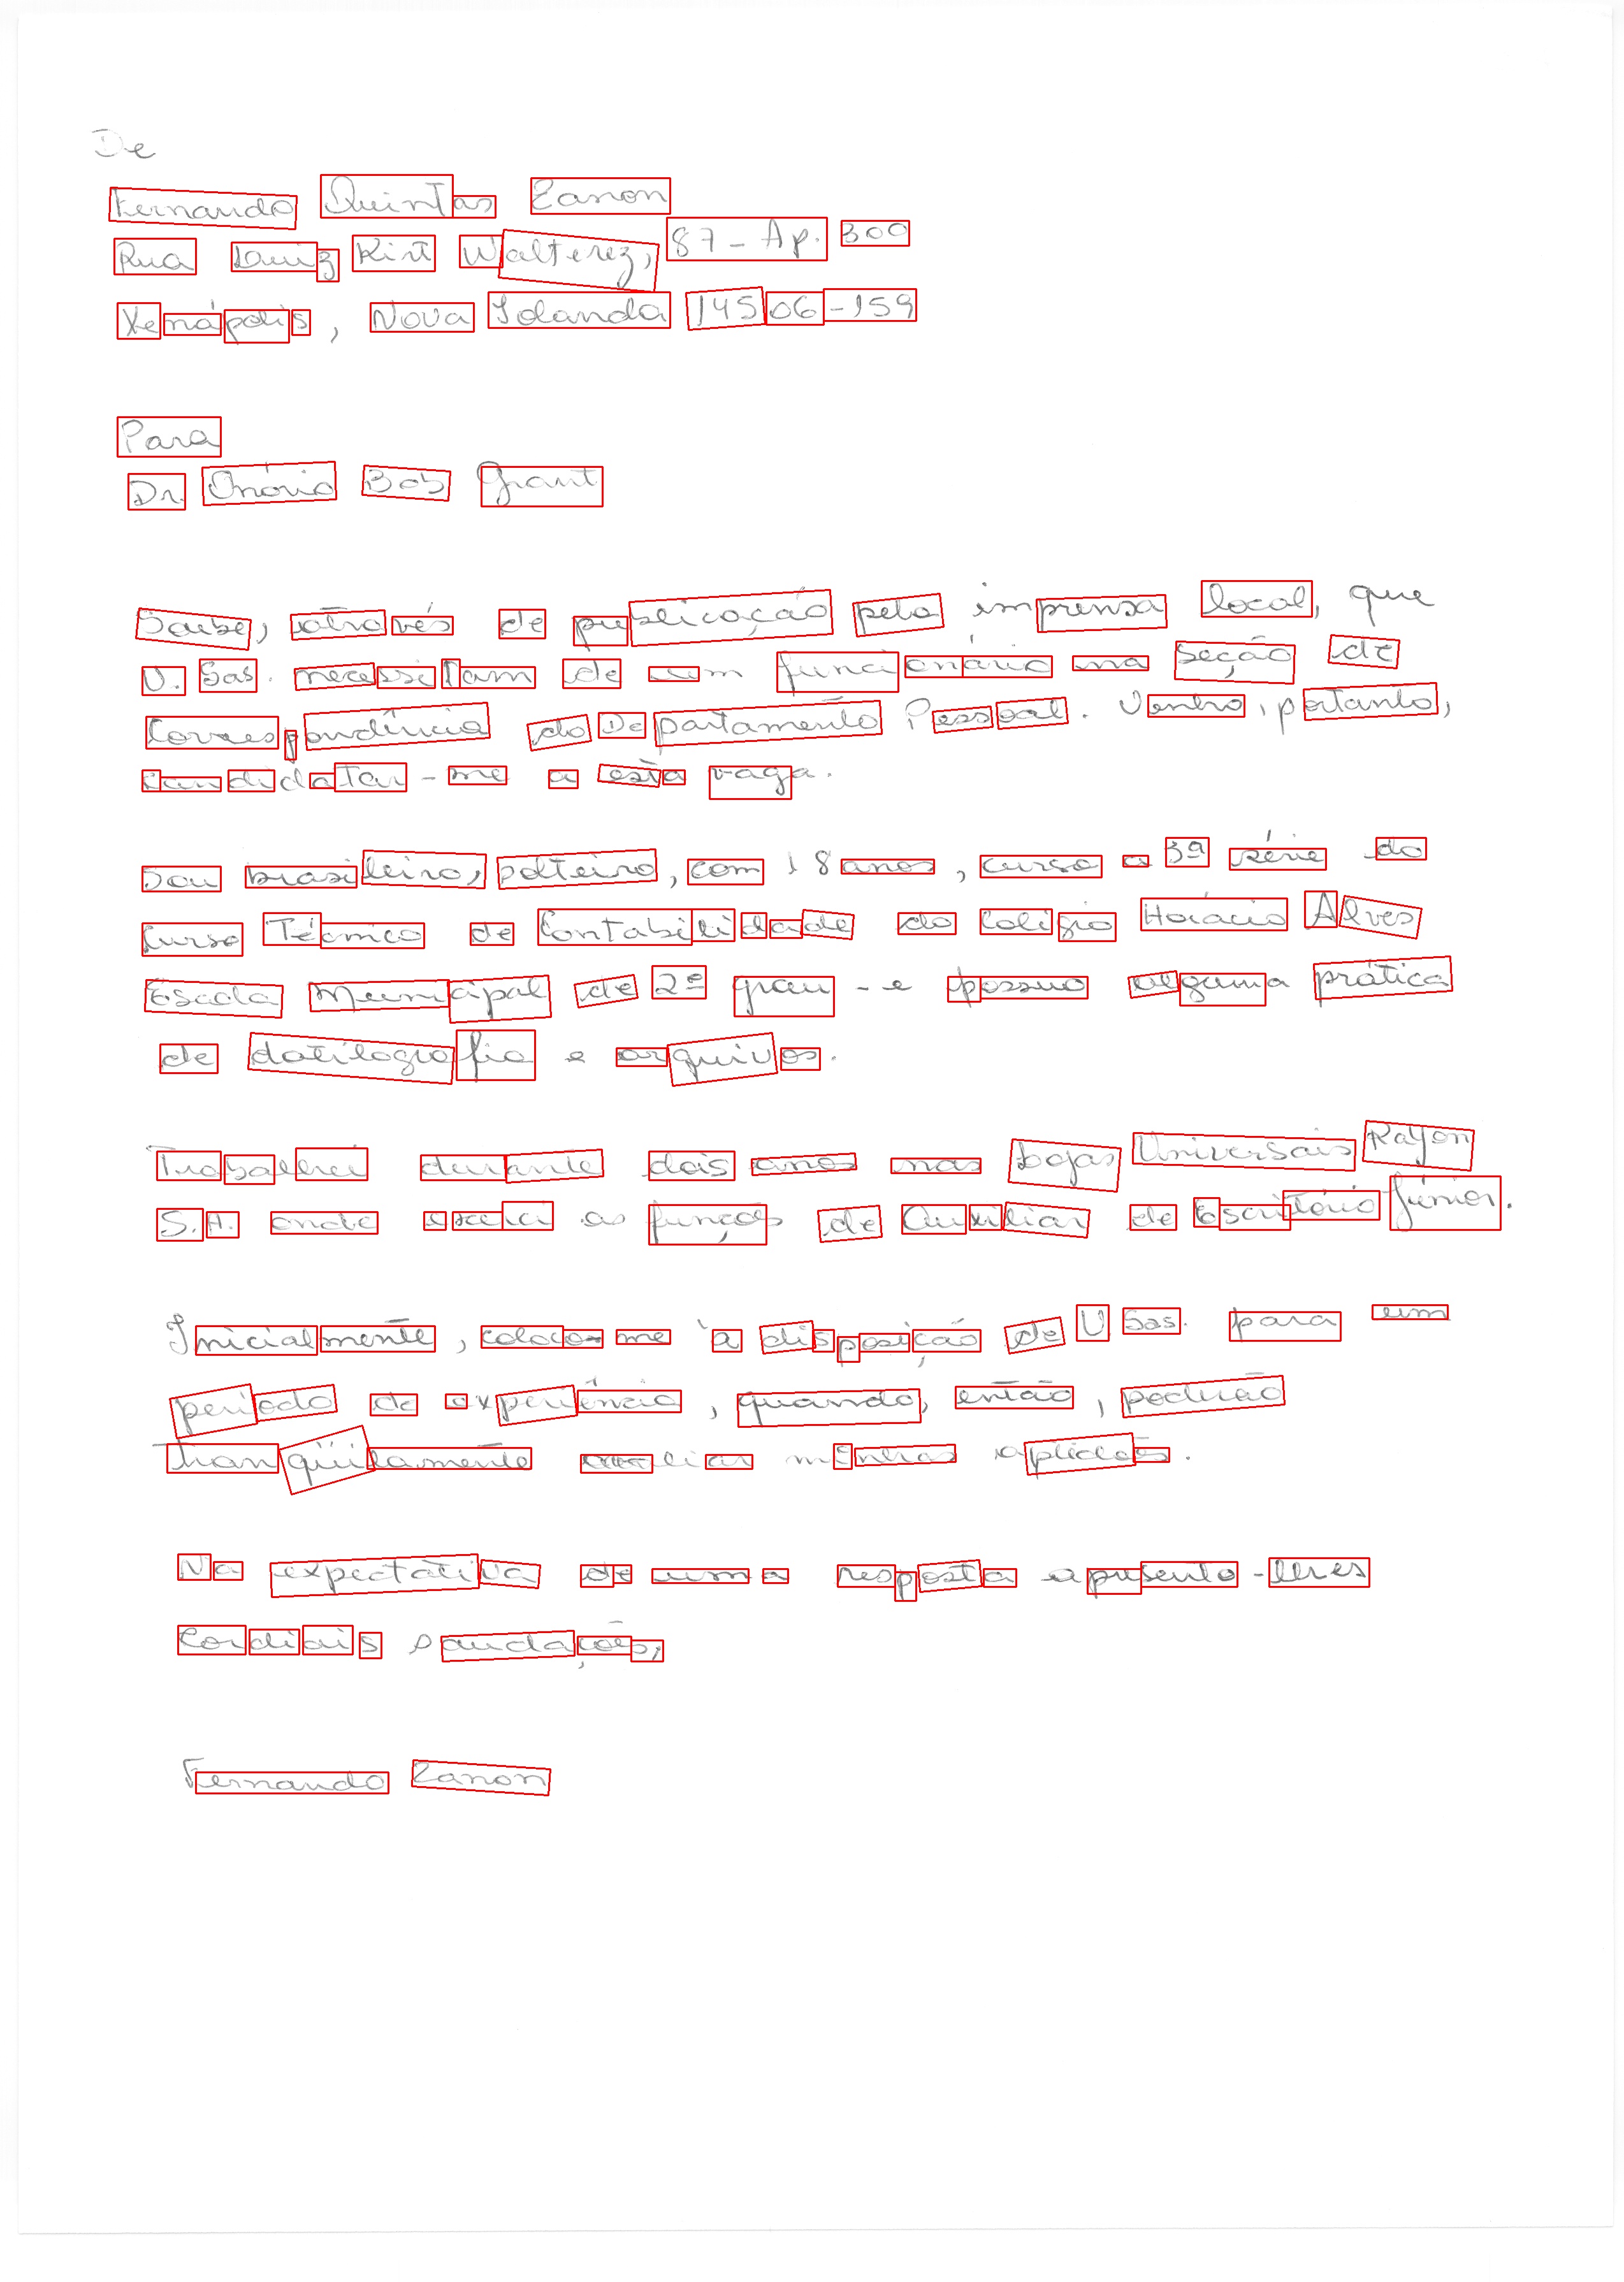 De
Fernando Quintas Zanon
Rua Luiz Kirt Walterez, 87 - Ap. 300
Xenápolis, Nova Iolanda 14506-159
Para
Dr. Onório Bob Grant
Soube, através de publicação pela imprensa local, que
V. Sas. necessitam de um funcionário na seção de
Correspondência do Departamento Pessoal. Venho, portanto,
candidatar-me a esta vaga.
Sou brasileiro, solteiro, com 18 anos, curso a 3ª série do
Curso Técnico de Contabilidade do Colégio Horácio Alves
Escola Municipal de 2º grau - e possuo alguma prática
de datilografia e arquivos.
Trabalhei durante dois anos nas Lojas Universais Rayon
S.A. onde exerci as funções de Auxiliar de Escritório Júnior.
Inicialmente, coloco-me à disposição de V Sas. para um
período de experiência, quando, então, poderão
tranqüilamente avaliar minhas aptidões.
Na expectativa de uma resposta apresento-lhes
Cordiais saudações,
Fernando Zanon